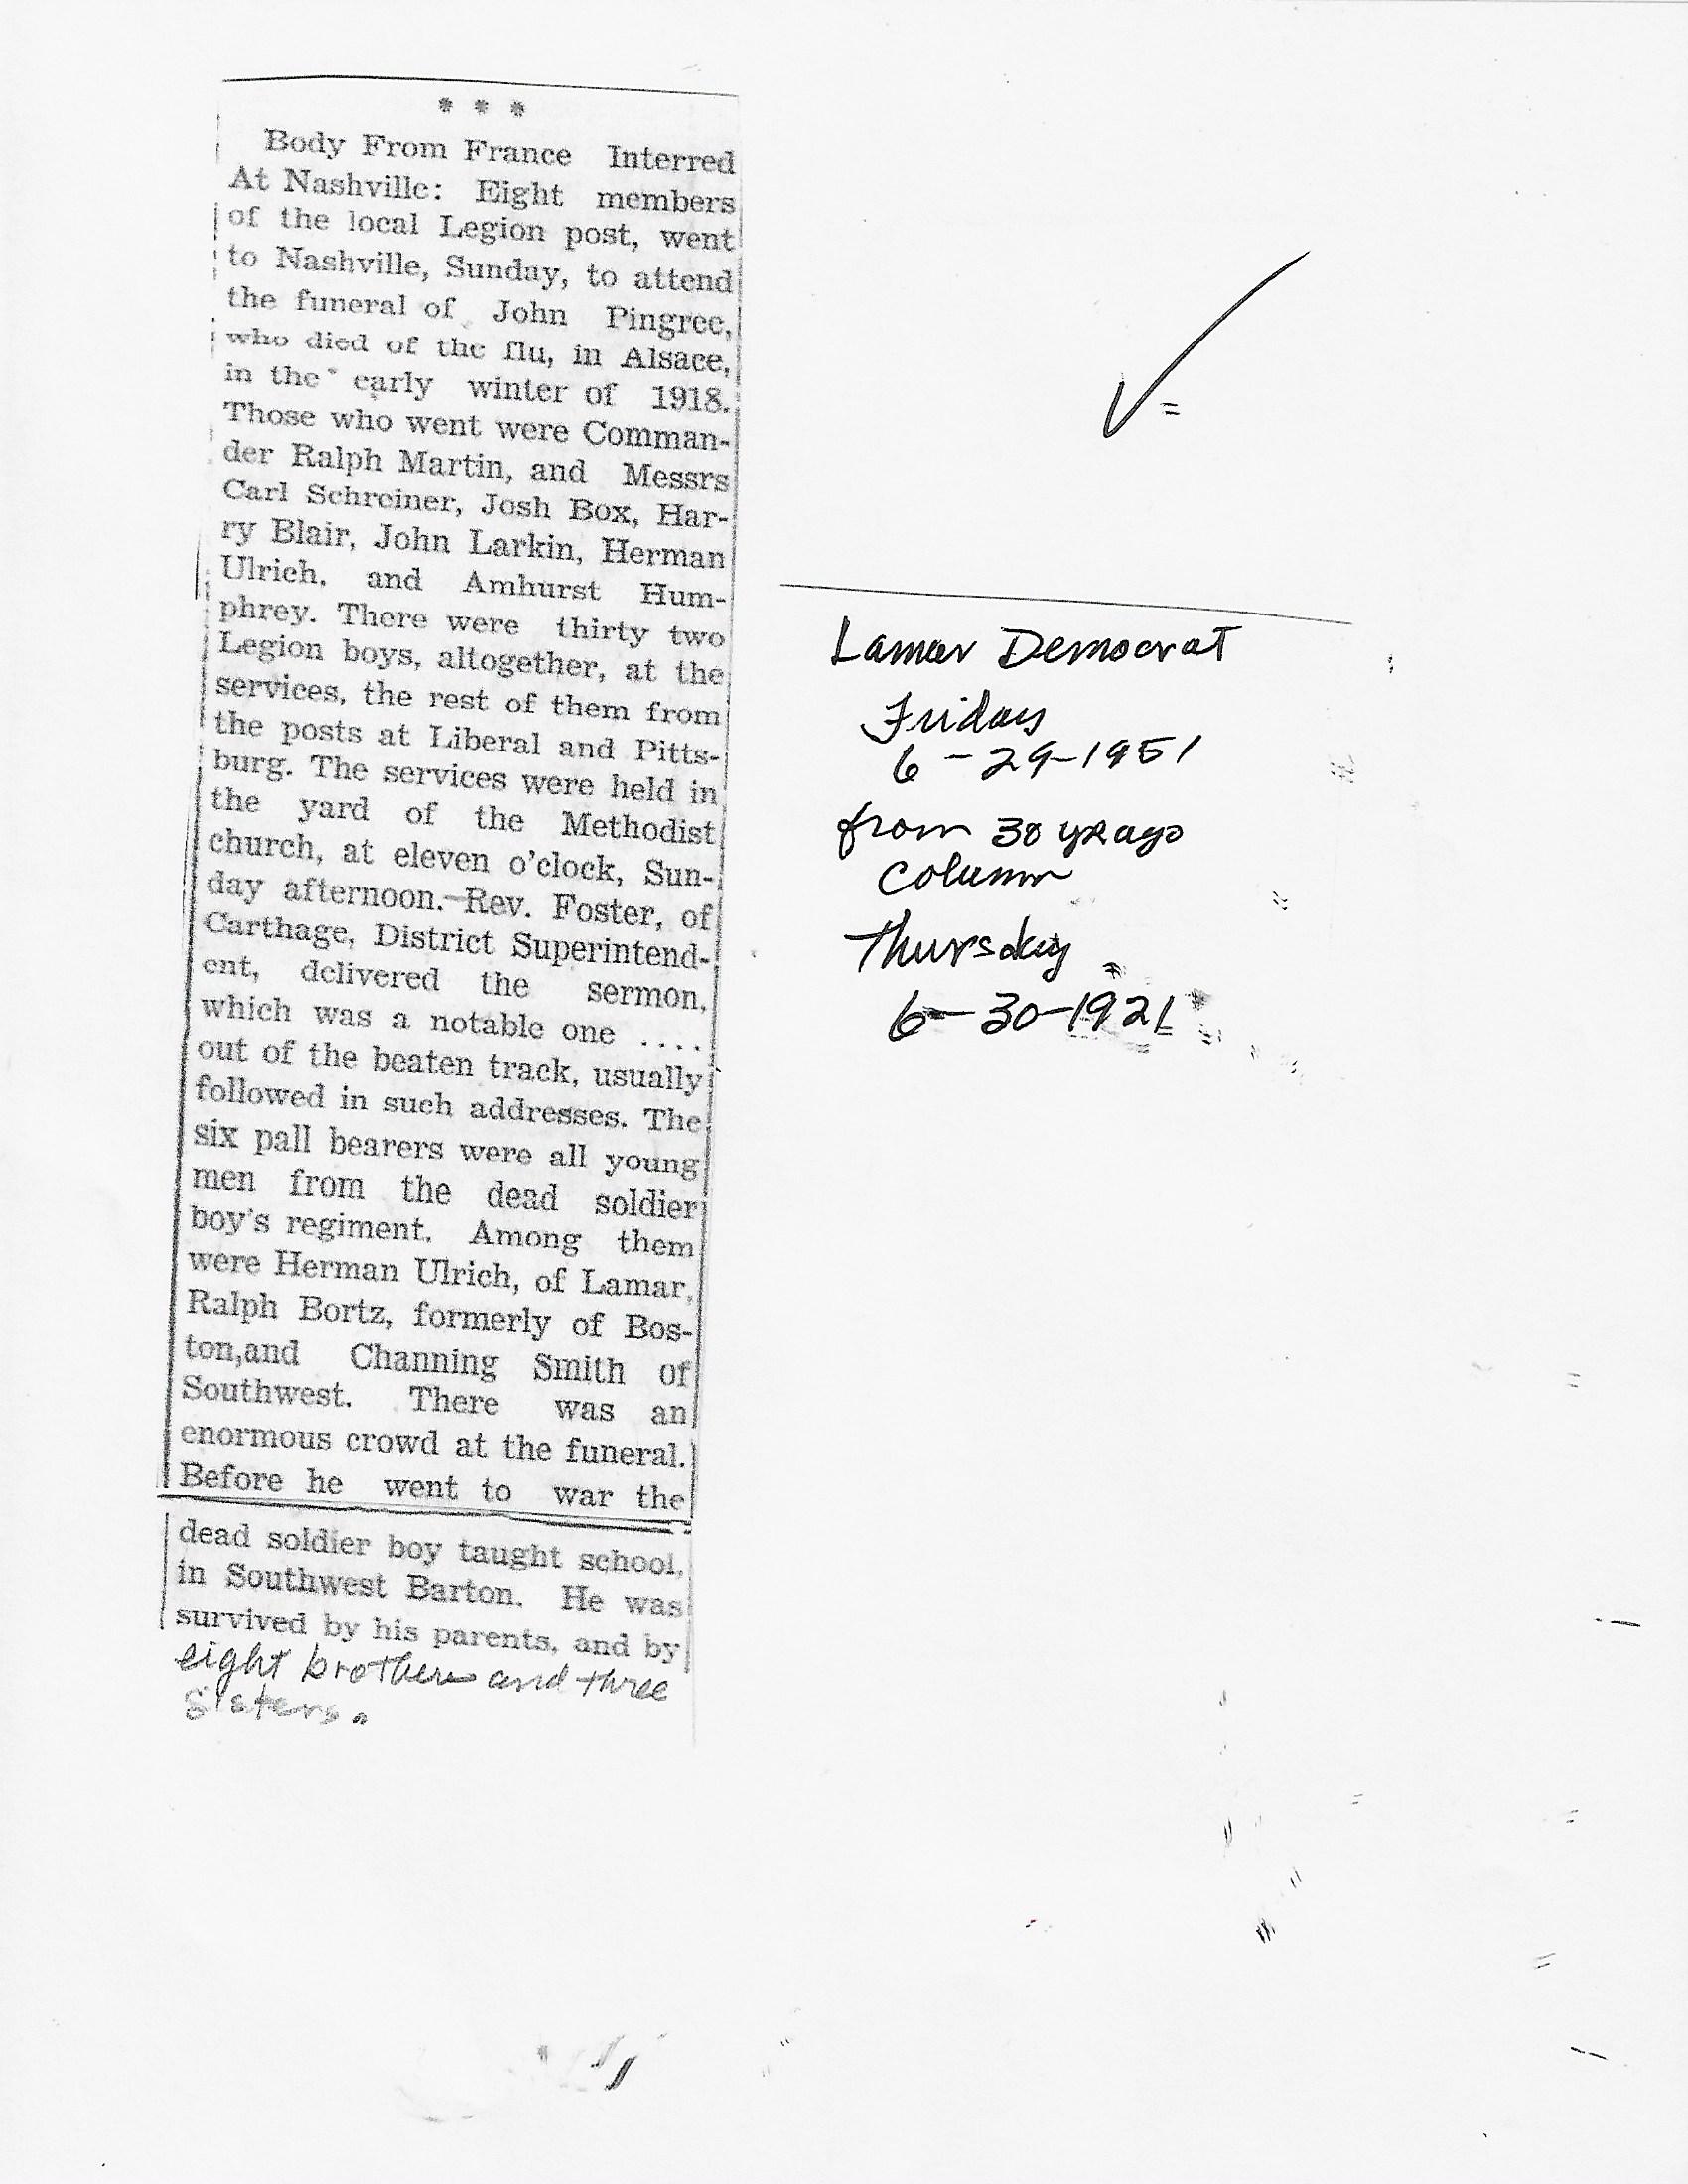 * * *
Body From France Interred
At Nashville: Eight members
of the local Legion post, went
to Nashville, Sunday, to attend
the funeral of John Pingree,
who died of the flu, in Alsace,
in the early winter of 1918.
Those who went were Comman-
der Ralph Martin, and Messrs
Carl Schreiner, Josh Box, Har-
ry Blair, John Larkin, Herman
Ulrich, and Amhurst Hum-
phrey. There were thirty two
Legion boys, altogether, at the
services, the rest of them from
the posts at Liberal and Pitts-
burg. The services were held in
the yard of the Methodist
church, at eleven o'clock, Sun-
day afternoon.—Rev. Foster, of
Carthage, District Superintend-
ent, delivered the sermon,
which was a notable one ....
out of the beaten track, usually
followed in such addresses. The
six pall bearers were all young
men from the dead soldier
boy's regiment. Among them
were Herman Ulrich, of Lamar,
Ralph Bortz, formerly of Bos-
ton,and Channing Smith of
Southwest. There was an
enormous crowd at the funeral.
Before he went to war the
dead soldier boy taught school,
in Southwest Barton. He was
survived by his parents, and by
eight brothers and three
sisters.
Lamar Democrat
Friday
6-29-1951
from 30 yr ago
column
Thursday
6-30-1921